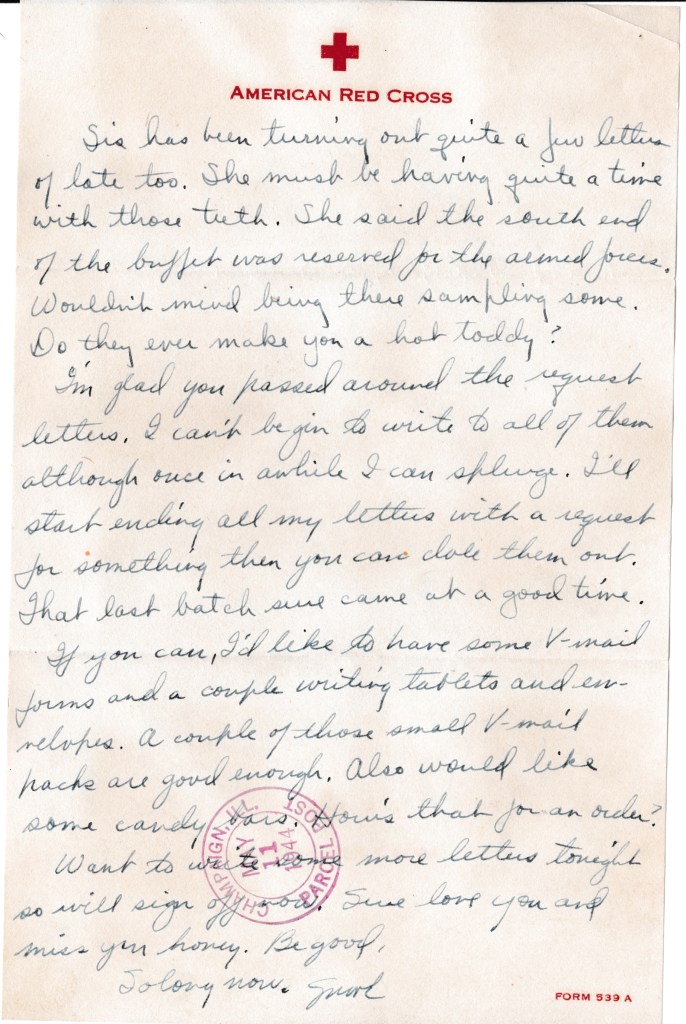 AMERICAN RED CROSS
Sis has been turning out quite a few letters
of late too. She must be having quite a time
with those teeth. She said the south end
of the buffet was reserved for the armed forces.
Wouldn't mind being there sampling some.
Do they ever make you a hot toddy?
I'm glad you passed around the request
letters. I can't begin to write to all of them
although once in awhile I can splurge. I'll
start ending all my letters with a request
for something then you can dole them out.
That last batch sure came at a good time.
If you can, I'd like to have some V-mail
forms and a couple writing tablets and en-
velopes. A couple of those small V-mail
packs are good enough. Also would like
some candy bars. How's that for an order?
Want to write some more letters tonight
so will sign off now. Sure love you and
miss you honey. Be good.
So long now.
CHAMPAIGN, ILL.
MAY
11
1944
PARCEL POST
FORM 539 A